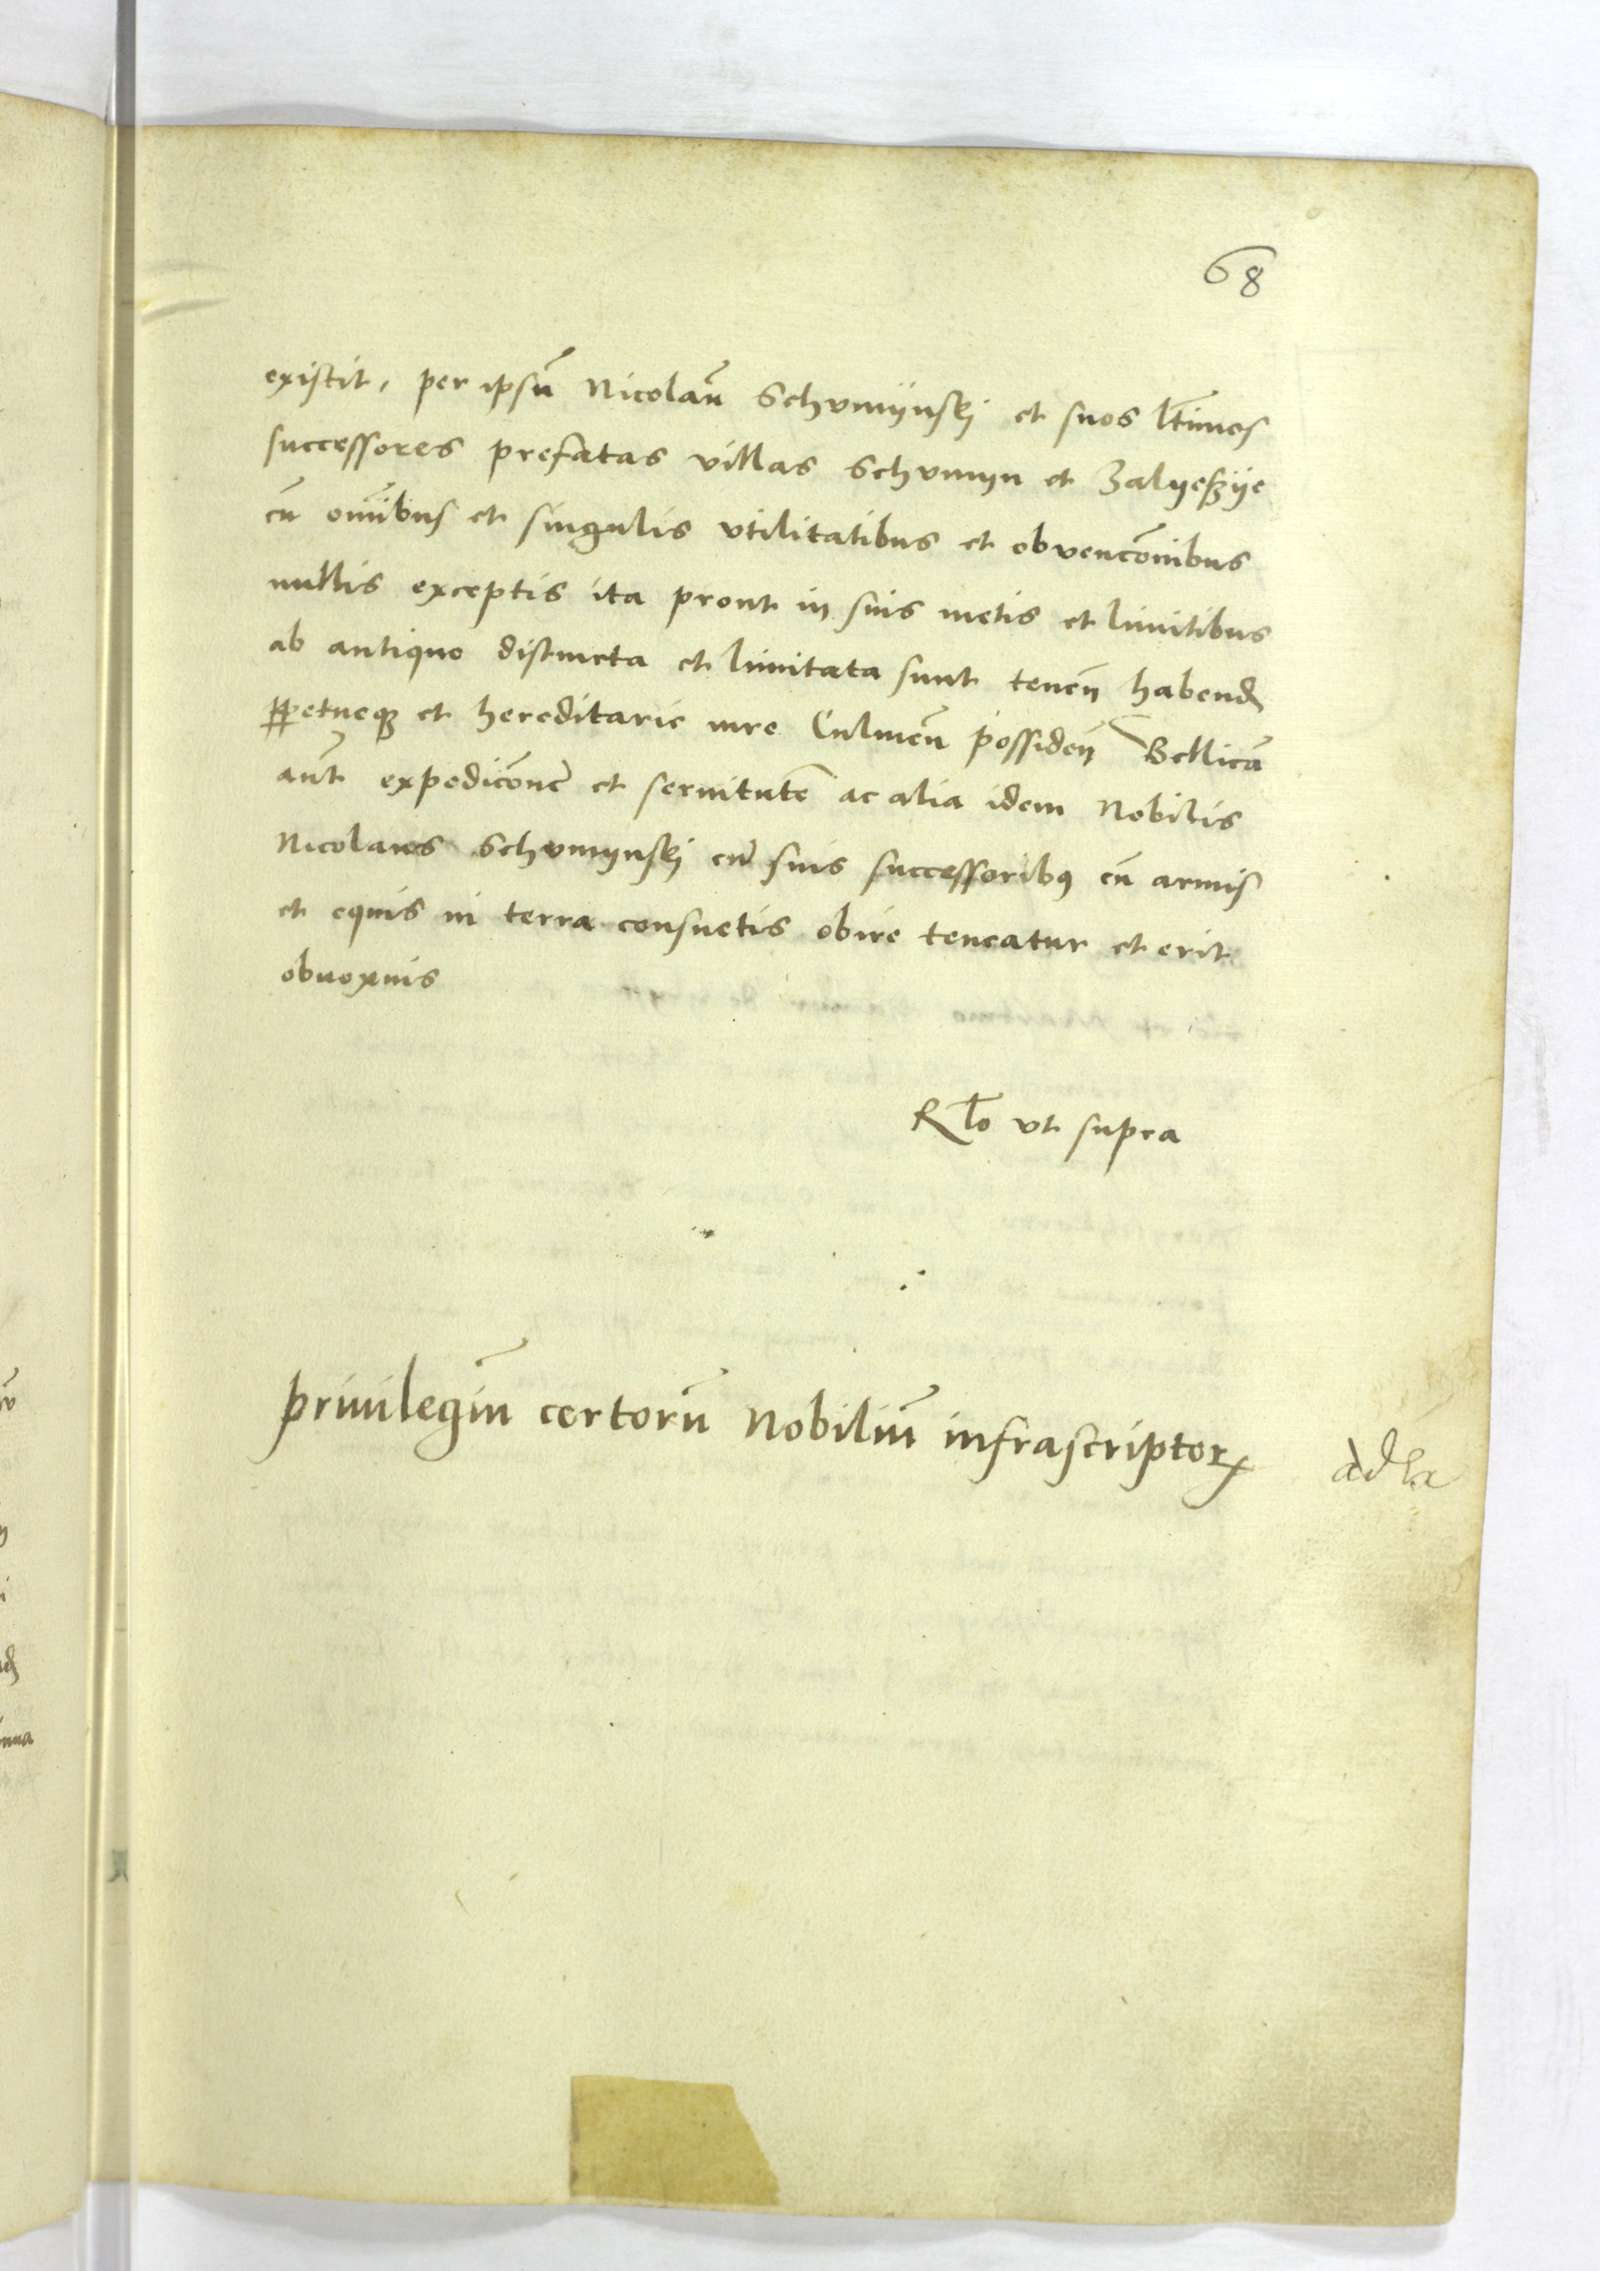 68
existit, per ipsū Nicolaū Schvmijnskj et suos ltimos
successores prefatas villas Schvmyn et Zalyeszije
cū om̄ibus et singulis vtilitatibus et obvencōnibus
nullis exceptis ita prout in suis metis et limitibus
ab antiquo distincta et limitata sunt tenen̄ habend
ꝑpetueqꝫ et hereditarie iure Culmen̄ possiden̄ Bellicā
aut̄ expedicōnē et seruitutē ac alia idem Nobilis
Nicolaus Schvmynskj cū suis successoribꝰ cū armis
et equis in terra consuetis obire teneatur et erit
obnoxius
Rlō vt supra
Priuilegiū certorū Nobiliū infrascriptoꝝ